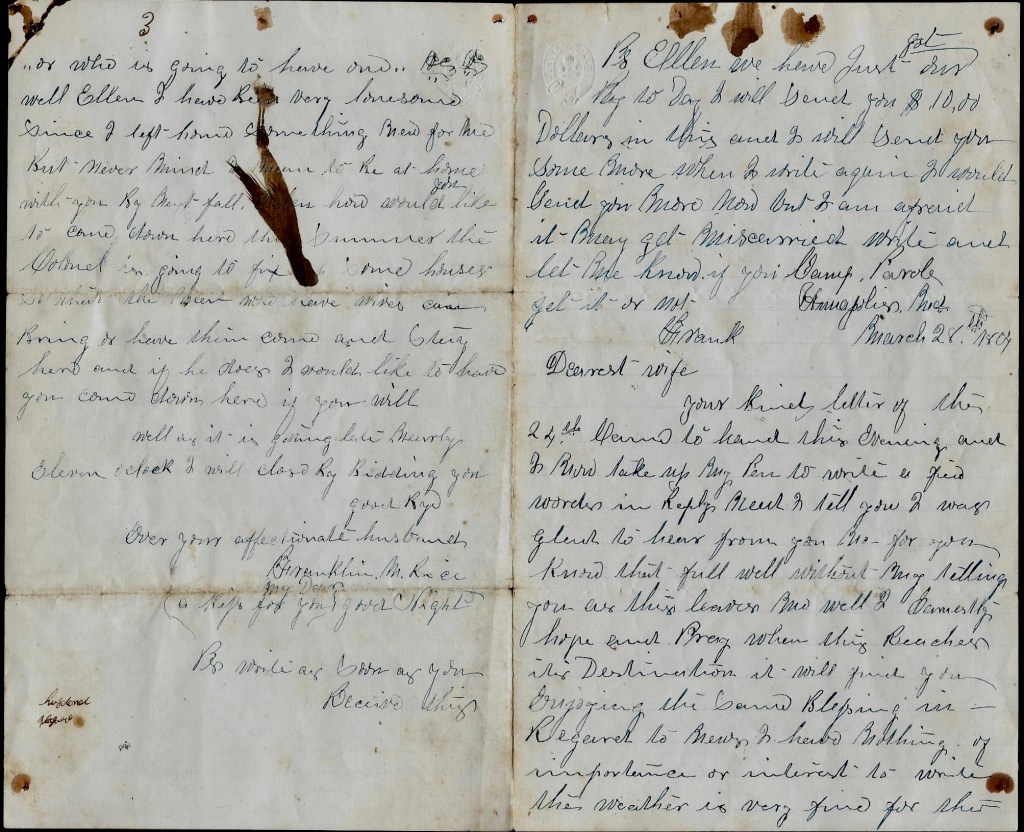 3
or who is going to have one
well Ellen I have been very lonesome
Since I left home Something New for Me
But Never Mind I Mean to Be at home
with you By Next fall. how would you like
to come down here this Summer the
Colonel is going to fix some houses
So that the Men who have wives can
Bring or have them come and Stay
here and if he does I would like to have
you come down here if you will
well as it is getting late Nearly
Eleven oclock I will close By Bidding you
good Bye
Ever your affectionate husband
Franklin. M. Rice
(a kiss for you my Dear) good Night
Ps write as Soon as you
Receive this
Ps Ellen we have Just got our
Pay to Day I will Send you $10,00
Dollars in this and I will Send you
Some More when I write again I would
Send you More Now But I am afraid
it May get Miscarried write and
let Me Know if you
get it or not
Frank
Camp. Parole
Annapolis, Md
March 28.th
Dearest wife
your Kind letter of the
24th Came to hand this Evening and
I Now take up My Pen to write a few
words in Reply Need I tell you I was
glad to hear from you No- for you
Know that full well without My telling
you as this leaves Me well I Earnestly
hope and Pray when this Reaches
its Destination it will find you
Enjoying the Same Blessing in -
Regard to News I have Nothing of
importance or interest to write
the weather is very fine for the